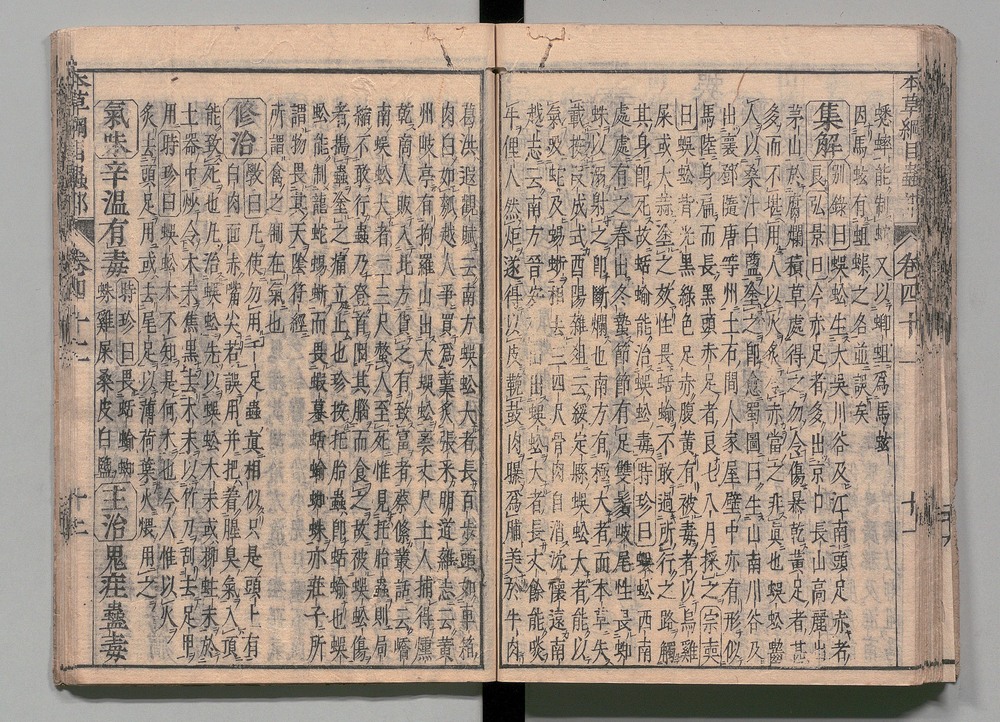 本草綱目蟲部 卷四十二
蟋蟀能制蛇又以蝍蛆爲馬蚿
因馬蚿有蛆蝶之名並誤矣
集解 別錄曰蜈蚣生大吳川谷及江南頭足赤者
良弘景曰今赤足者多出京口長山高麗山
茅山於腐爛積草處得之勿令傷暴乾黃足者甚
多而不堪用人以火炙令赤當之非真也蜈蚣齧
人以桑汁白鹽塗之即愈蜀圖曰生山南川谷及
出襄鄧隨唐等州土石間人家屋壁中亦有形似
馬陸身扁而長黑頭赤足者良七八月採之宗奭
曰蜈蚣背光黑綠色足赤腹黃有被毒者以烏雞
屎或大蒜塗之效性畏蛞蝓不敢過所行之路觸
其身即死故蛞蝓能治蜈蚣毒時珍曰蜈蚣西南
處處有之春出冬蟄節節有足雙鬚岐尾性畏蜘
蛛以溺射之即斷爛也南方有極大者而本草失
載按段成式酉陽雜俎云綏定縣蜈蚣大者能以
氣吸蛇及蜴蜥相去三四尺骨肉自消沈懷遠南
越志云南方晉安出蜈蚣大者長丈餘能啖
牛俚人然炬遂得以皮鞔鼓肉曝爲脯美於牛肉
葛洪遐觀賦云南方蜈蚣大者長百步頭如車箱
肉白如瓠越人爭買爲羹炙張耒明道雜志云黃
州岐亭有拘羅山出大蜈蚣袤丈尺土人捕得熏
乾南人販入北方貨之有致富者蔡絛叢話云嶠
南蜈蚣大者二三尺螫人至死惟見托胎蟲則局
縮不敢行蟲乃登首陷其腦而食之故被蜈蚣傷
者搗蟲塗之痛立止也珍按托胎蟲即蛞蝓也蜈
蚣能制龍蛇蜴蜥而畏蝦蟇蛞蝓蜘蛛亦莊子所
謂物畏其天陰符經
所謂禽之制在氣也
修治 斅曰凡使勿用千足蟲真相似只是頭上有
白肉面赤嘴尖若誤用并把着腥臭氣入頂
能致死也凡治蜈蚣先以蜈蚣木末或柳蛀末於
土器中炒令木末焦黑去木末以竹刀刮去足甲
用時珍曰蜈蚣木不知是何木也今人惟以火
炙去頭足用或去尾足以薄荷葉火煨用之
氣味辛溫有毒 時珍曰畏蛞蝓蜘
蛛雞屎桑皮白鹽 主治鬼疰蠱毒
本草綱目蟲部 卷四十二 十二